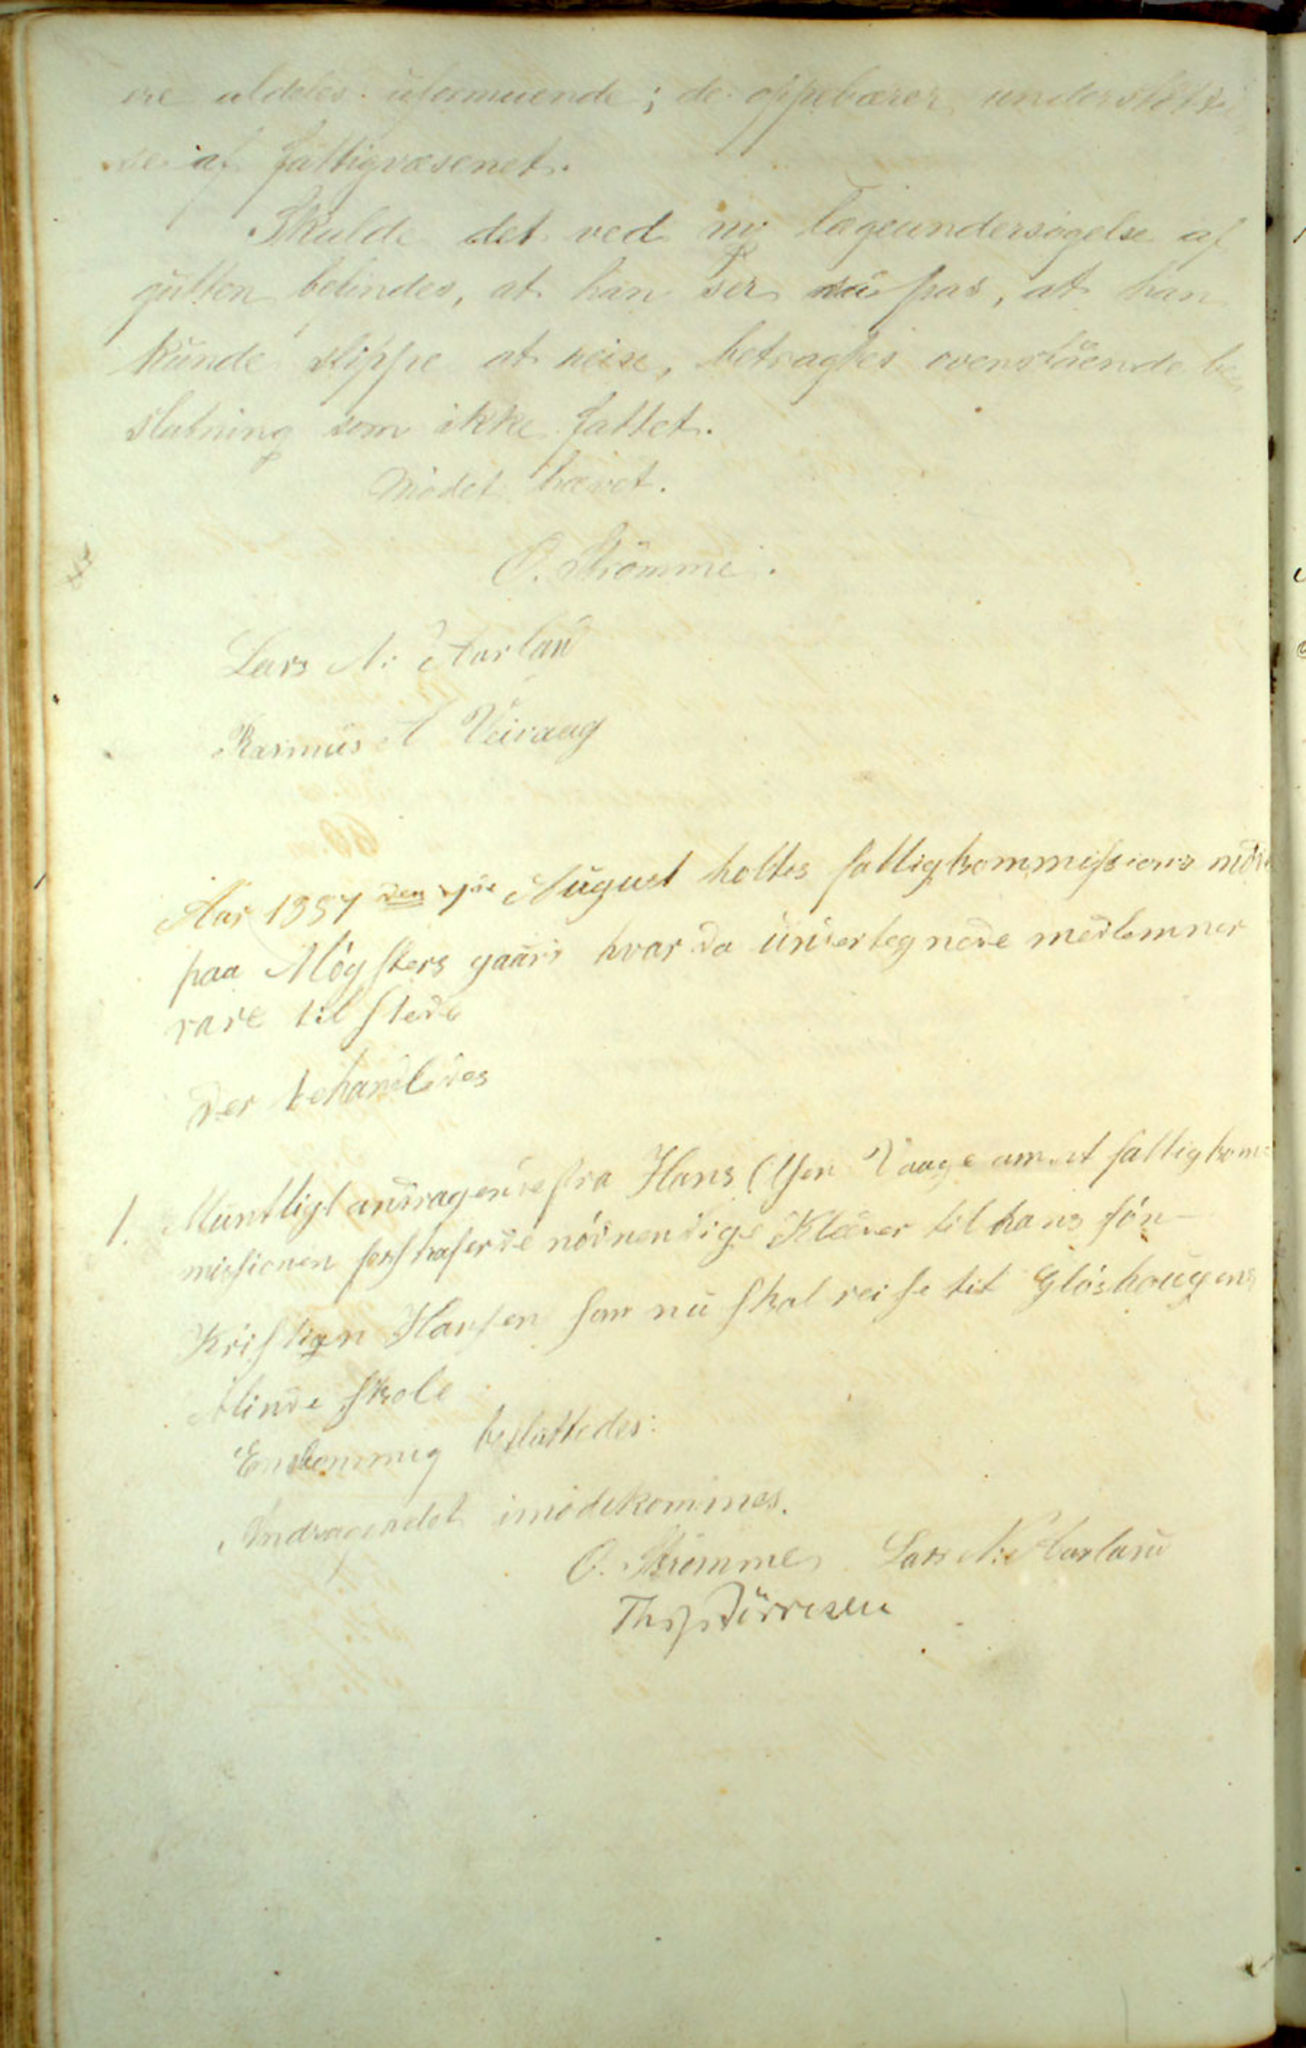 ere aldeles uformuende; de oppebærer understøttel-
se af fattigvæsenet.
Skulde det ved ny lægeundersøgelse af
gutten befindes, at han ser saa pas, at han
kunde slippe at reise, betragtes ovenstaaende be-
slutning som ikke fattet.
Mødet hævet.
O. Strömme.
Lars N. Aarland
Rasmus A Veivaag
Aar 1887 den August holtes fattigkommissions mö
paa Mögsters gaard hvor da undertegnede medlemner
vare til stede
der behandledes
1. Muntligt andragende fra Hans Olsen Vaage om at fattigkom-
missionen forskaferde nödvendige Klæder til hans sön
Kristian Hansen som nu skal reise til Glöshougens
Blinde skole
Enstemmig besluttedes:
Andragendet imødekommes.
O. Strømme Lars N. Aarland
Ths. Törresen